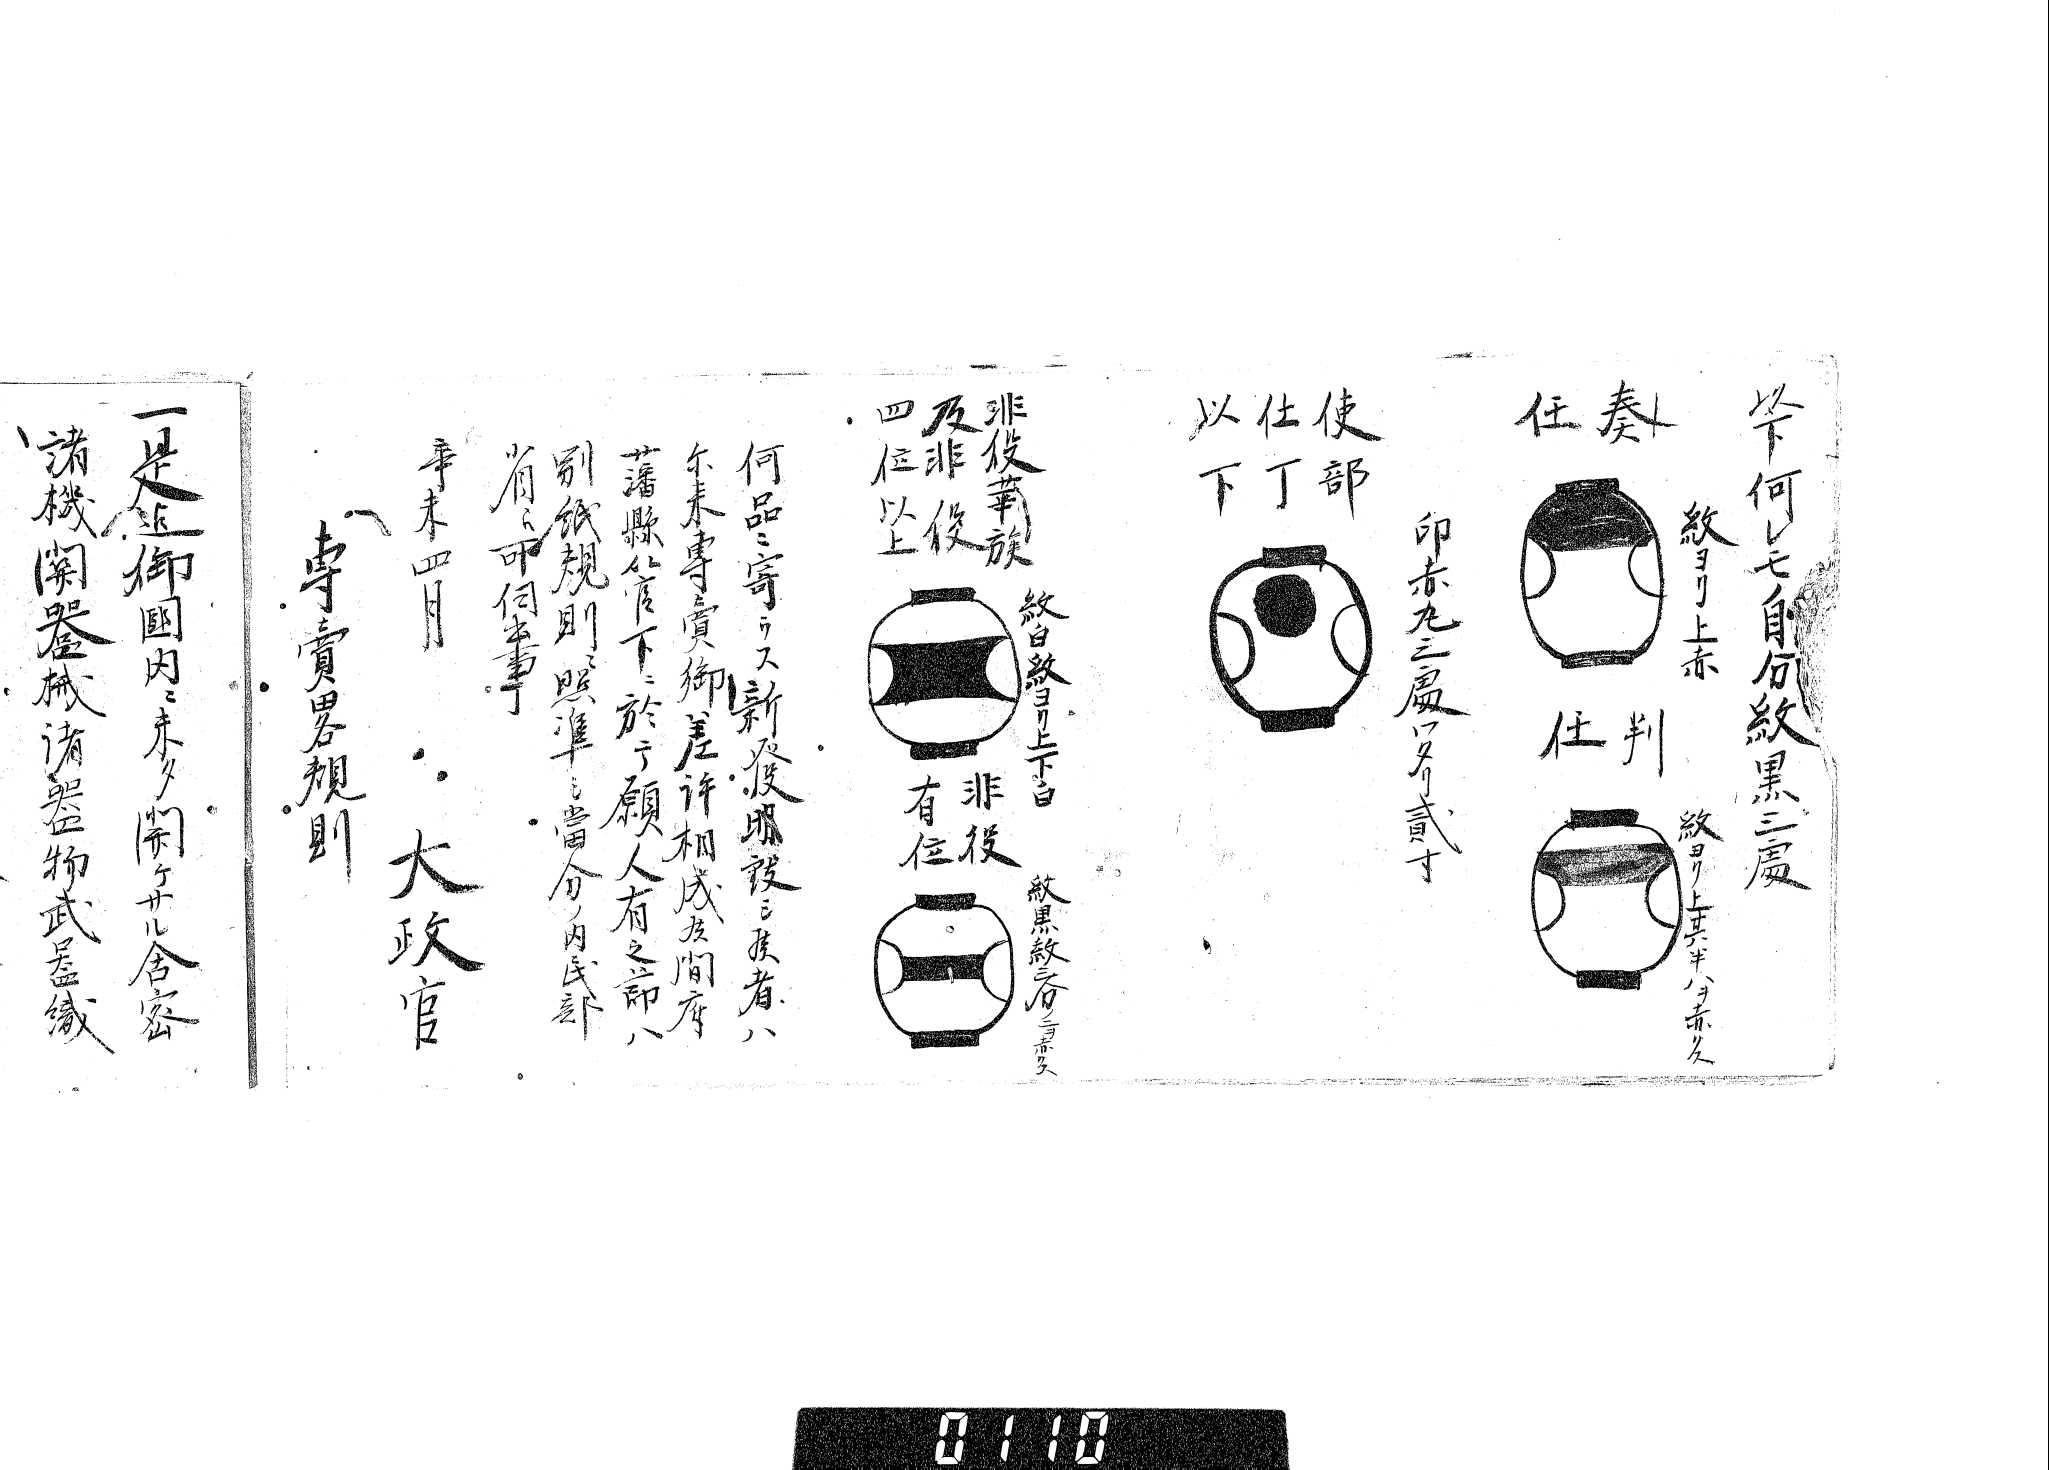 以下何レモ自分紋黒三處
奏任
紋ヨリ上赤
判任
紋ヨリ上其半ハヲ赤クス
印赤丸三處ワタリ貳寸
使部
仕丁
以下
非役華族
及非役
四位以上
紋白紋ヨリ上下白
非役
有位
紋黒紋三分ノ二ヲ赤クス
何品ニ寄ラス新發明致シ候者ハ
尓来専賣御差許相成候間府
藩縣管下ニ於テ願人有之節ハ
別紙規則ニ照準シ當分ノ内民部
省ヘ可伺出事
辛未四月
大政官
専賣畧規則
一是迄御國内ニ未タ開ケサル舎密
諸機関器械諸器物武器織
0110